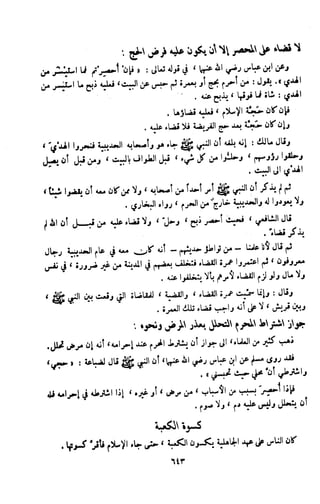 لا قضاء على المحصر إلا أن يكون عليه فرض الحج :
وعن ابن عباس رضي الله عنهما ، في قوله تعالى : « فإن أحصرتم فما استيسر من
الهدي » . يقول : من أحرم بحج أو بعمرة ثم حبس عن البيت ، فعليه ذبح ما استيسر من
الهدي : شاة فما فوقها ، يذبح عنه .
فإن كان حجّة الإسلام ، فعليه قضاؤها .
وإن كان حجّة بعد حج الفريضة فلا قضاء عليه .
وقال مالك : إنه بلغه أن النبي ﷺ جاء هو وأصحابه الحديبية فنحروا الهدي ،
وحلقوا رؤوسهم ، وحلّوا من كل شيء ، قبل الطواف بالبيت ، ومن قبل أن يصل
الهدي الى البيت .
ثم لم يذكر أن النبي ﷺ أمر أحداً من أصحابه ، ولا ممن كان معه أن يقضوا شيئاً ،
ولا يعودوا له والحديبية خارج من الحرم ، رواه البخاري .
قال الشافعي ، فحيث أحصر ذبح ، وحلّ ، ولا قضاء عليه من قبل أن الله لم
يذكر قضاء .
ثم قال لأنا علمنا – من تواطؤ حديثهم – أنه كان معه في عام الحديبية رجال
معروفون ، ثم اعتمروا عمرة القضاء فتخلف بعضهم في المدينة من غير ضرورة ، في نفس
ولا مال ولو لزم القضاء لأمرهم بألا يتخلفوا عنه .
وقال : وإنما سميت عمرة القضاء ، والقضية ، للمقاضاة التي وقعت بين النبي ﷺ ،
وبين قريش ، لا على أنه واجب قضاء تلك العمرة .
جواز اشتراط المحرم التحلل بعذر المرض ونحوه :
ذهب كثير من العلماء ، الى جواز أن يشترط المحرم عند إحرامه ، أنه إن مرض تحلل .
فقد روى مسلم عن ابن عباس رضي الله عنهما ، أن النبي ﷺ قال لضباعة : « حجي ،
واشترطي أنّ محلي حيث تحبسني » .
فإذا أحصر بسبب من الأسباب ، من مرض ، أو غيره ، إذا اشترطه في إحرامه فله
أن يتحلل وليس عليه دم ، ولا صوم .
كسوة الكعبة
كان الناس على عهد الجاهلية يكسون الكعبة ، حتى جاء الإسلام فأقرّ كسوتها .
٦٤٣